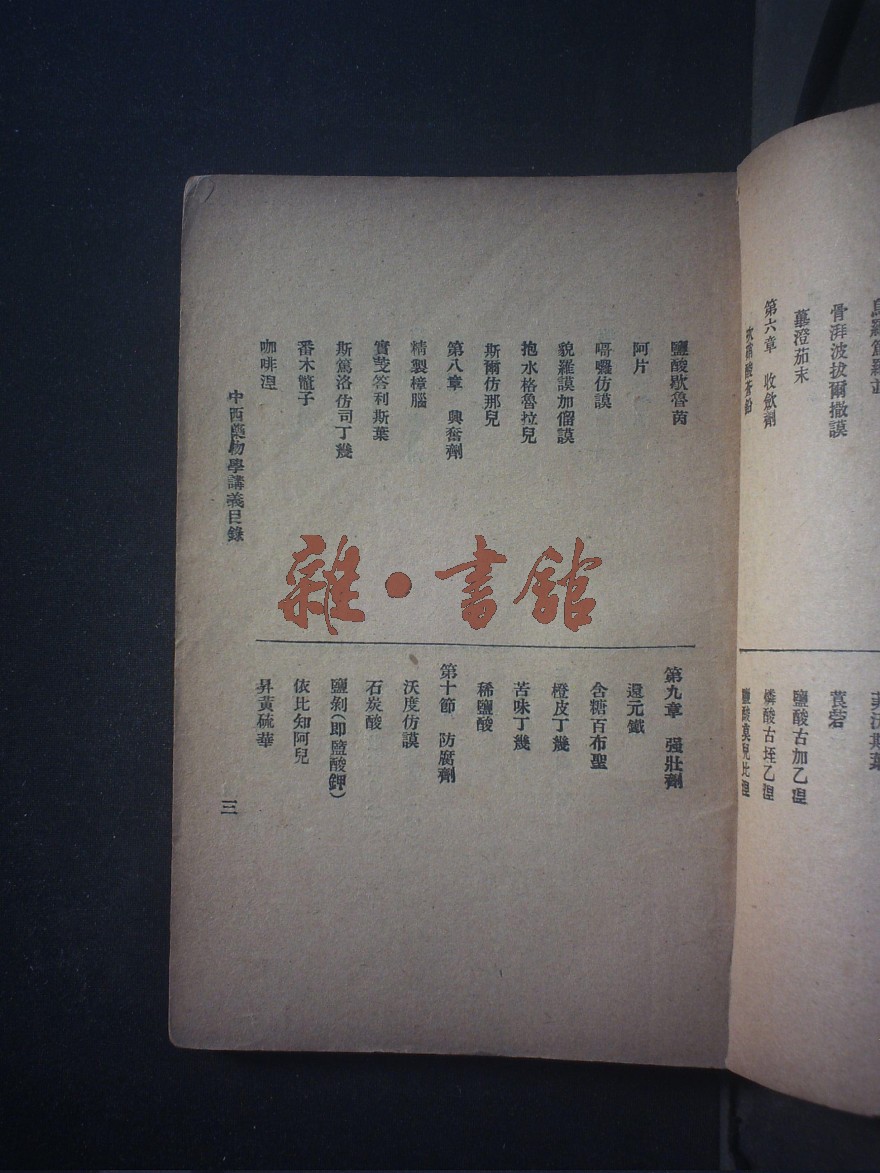 骨湃波拔爾撒謨
蓽澄茄末
第六章　收歛劑
莨菪
鹽酸古加乙涅
燐酸古垤乙涅
鹽酸莫兒比涅
鹽酸歇魯茵
阿片
嚼囉仿謨
貌羅謨加僧謨
抱水格魯拉兒
斯爾仿那兒
第八章　興奮劑
精製樟腦
實芰答利斯葉
斯篤洛仿司丁幾
番木鼈子
咖啡涅
第九章　强壯劑
還元鐵
含糖百布聖
橙皮丁幾
苦味丁幾
稀鹽酸
第十節　防腐劑
沃度仿謨
石炭酸
鹽剝(即鹽酸鉀)
依比知阿兒
昇黃硫華
中西藥物學講義目錄
三
雜·書館